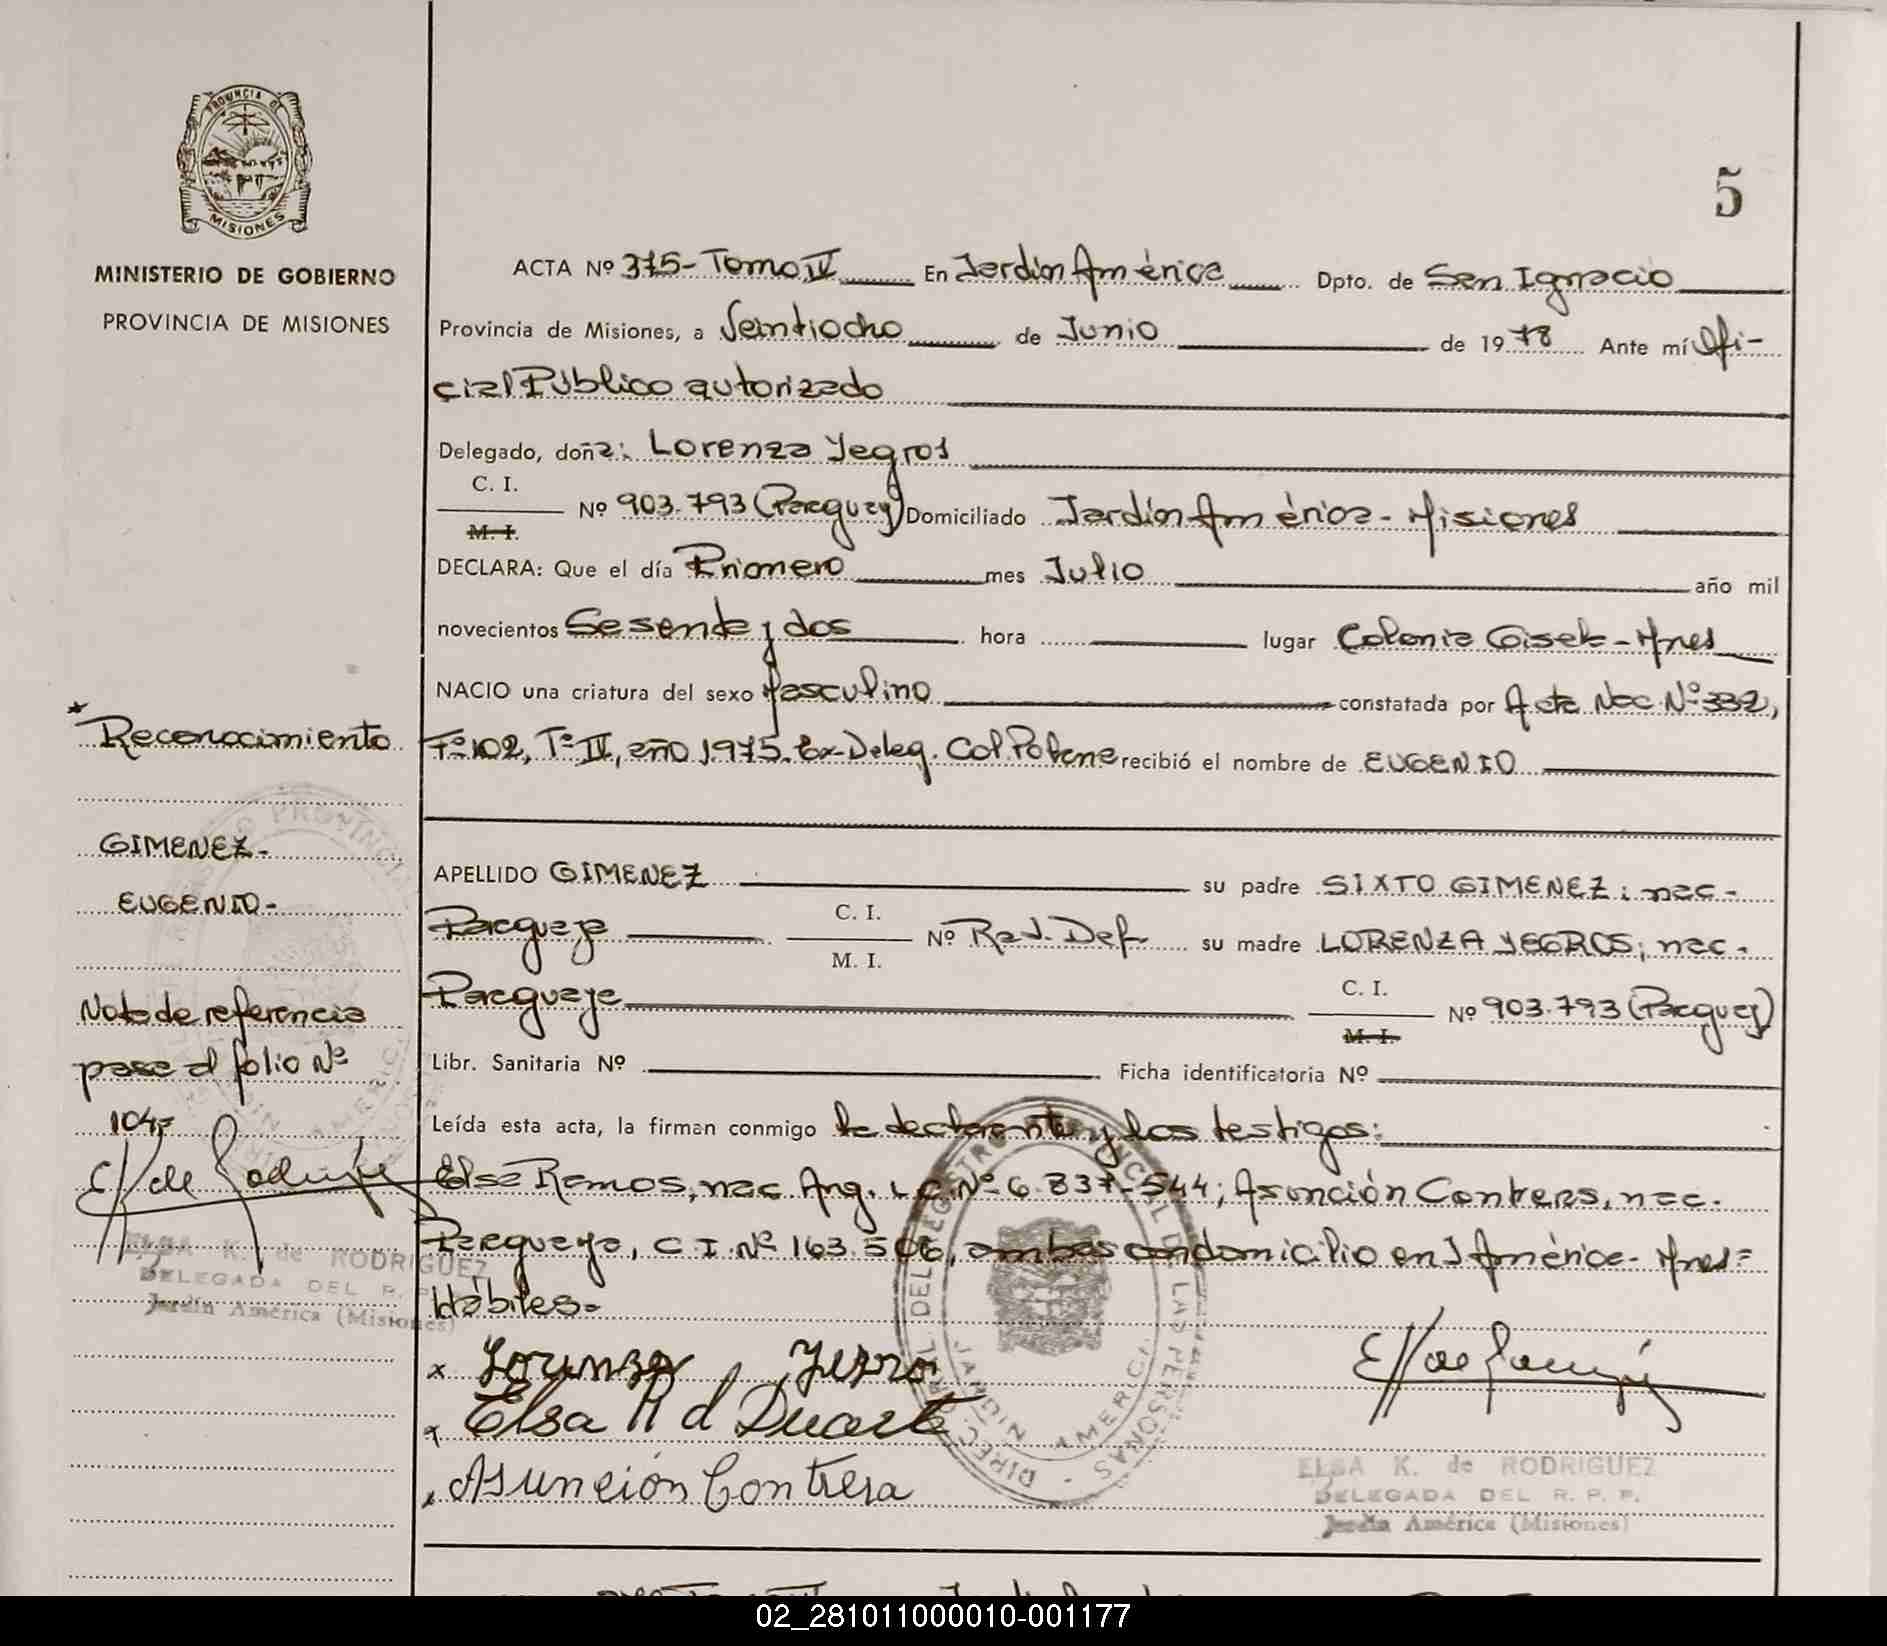 PROVINCIA DE
MISIONES
MINISTERIO DE GOBIERNO
PROVINCIA DE MISIONES
5
ACTA Nº 375-Tomo IV En Jardín América Dpto. de San Ignacio
Provincia de Misiones, a Veintiocho de Junio de 1978 Ante mí Ofi-
cial Público autorizado
Delegado, doña: Lorenza Yegros
C. I.
M. I. Nº 903.793 (Paraguay) Domiciliado Jardín América - Misiones
DECLARA: Que el día Primero mes Julio año mil
novecientos Sesenta y dos hora lugar Colonia Gisela - Mnes
NACIO una criatura del sexo Masculino constatada por Acta Nac. Nº 332,
Fº 102, Tº II, año 1975. Ex-Deleg. Col. Polana recibió el nombre de EUGENIO
APELLIDO GIMENEZ su padre SIXTO GIMENEZ; nac-
Paraguaya C. I. M. I. Nº Rad. Def. su madre LORENZA YEGROS; nac-
Paraguaya C. I. M. I. Nº 903.793 (Paraguay)
Libr. Sanitaria Nº Ficha identificatoria Nº
Leída esta acta, la firman conmigo la declarante y los testigos:
Elsa Ramos, nac. Arg. L.C. Nº 6.837-544; Asunción Contrera, nac.
Paraguaya, C I. Nº 163.506, ambas con domicilio en J América - Mnes=
Hábiles=
x Lorenza Yegro
x Elsa R d Duarte
x Asunción Contrera
ELSA K. de RODRIGUEZ
DELEGADA DEL R. P. P.
Jardín América (Misiones)
DIREC. GRAL. DEL REGISTRO PROVINCIAL DE LAS PERSONAS
JARDIN AMERICA
* Reconocimiento
GIMENEZ-
EUGENIO-
Nota de referencia
pasa al folio Nº
104=
ELSA K. de RODRIGUEZ
DELEGADA DEL R. P.
Jardín América (Misiones)
02_281011000010-001177